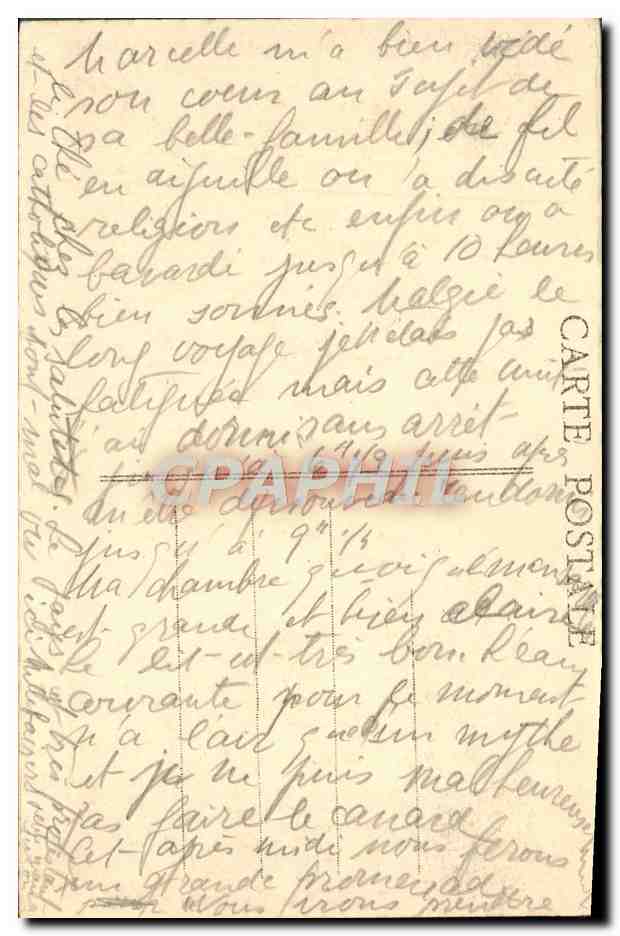 Marcelle m'a bien vidé
son coeur au sujet de
sa belle-famille; de fil
en aiguille on a discuté
religion etc enfin on a
bavardé jusqu'à 10 heures
bien sonnées. Malgré le
long voyage je n'étais pas
fatiguée mais cette nuit
j'ai dormi sans arrêt
6h 1/2 puis après
jusqu'à 9h 1/4
Ma chambre quoique
est grande et bien claire
le lit est très bon. L'eau
courante pour le moment
n'a l'air que d'un mythe
et je ne puis malheureusement
pas faire le canard
Cet après midi nous ferons
une grande promenade
Nous irons prendre
le thé chez les salutistes. Le pays est très protestant
et les catholiques sont mal vus ici
CARTE POSTALE
CPAPHIL